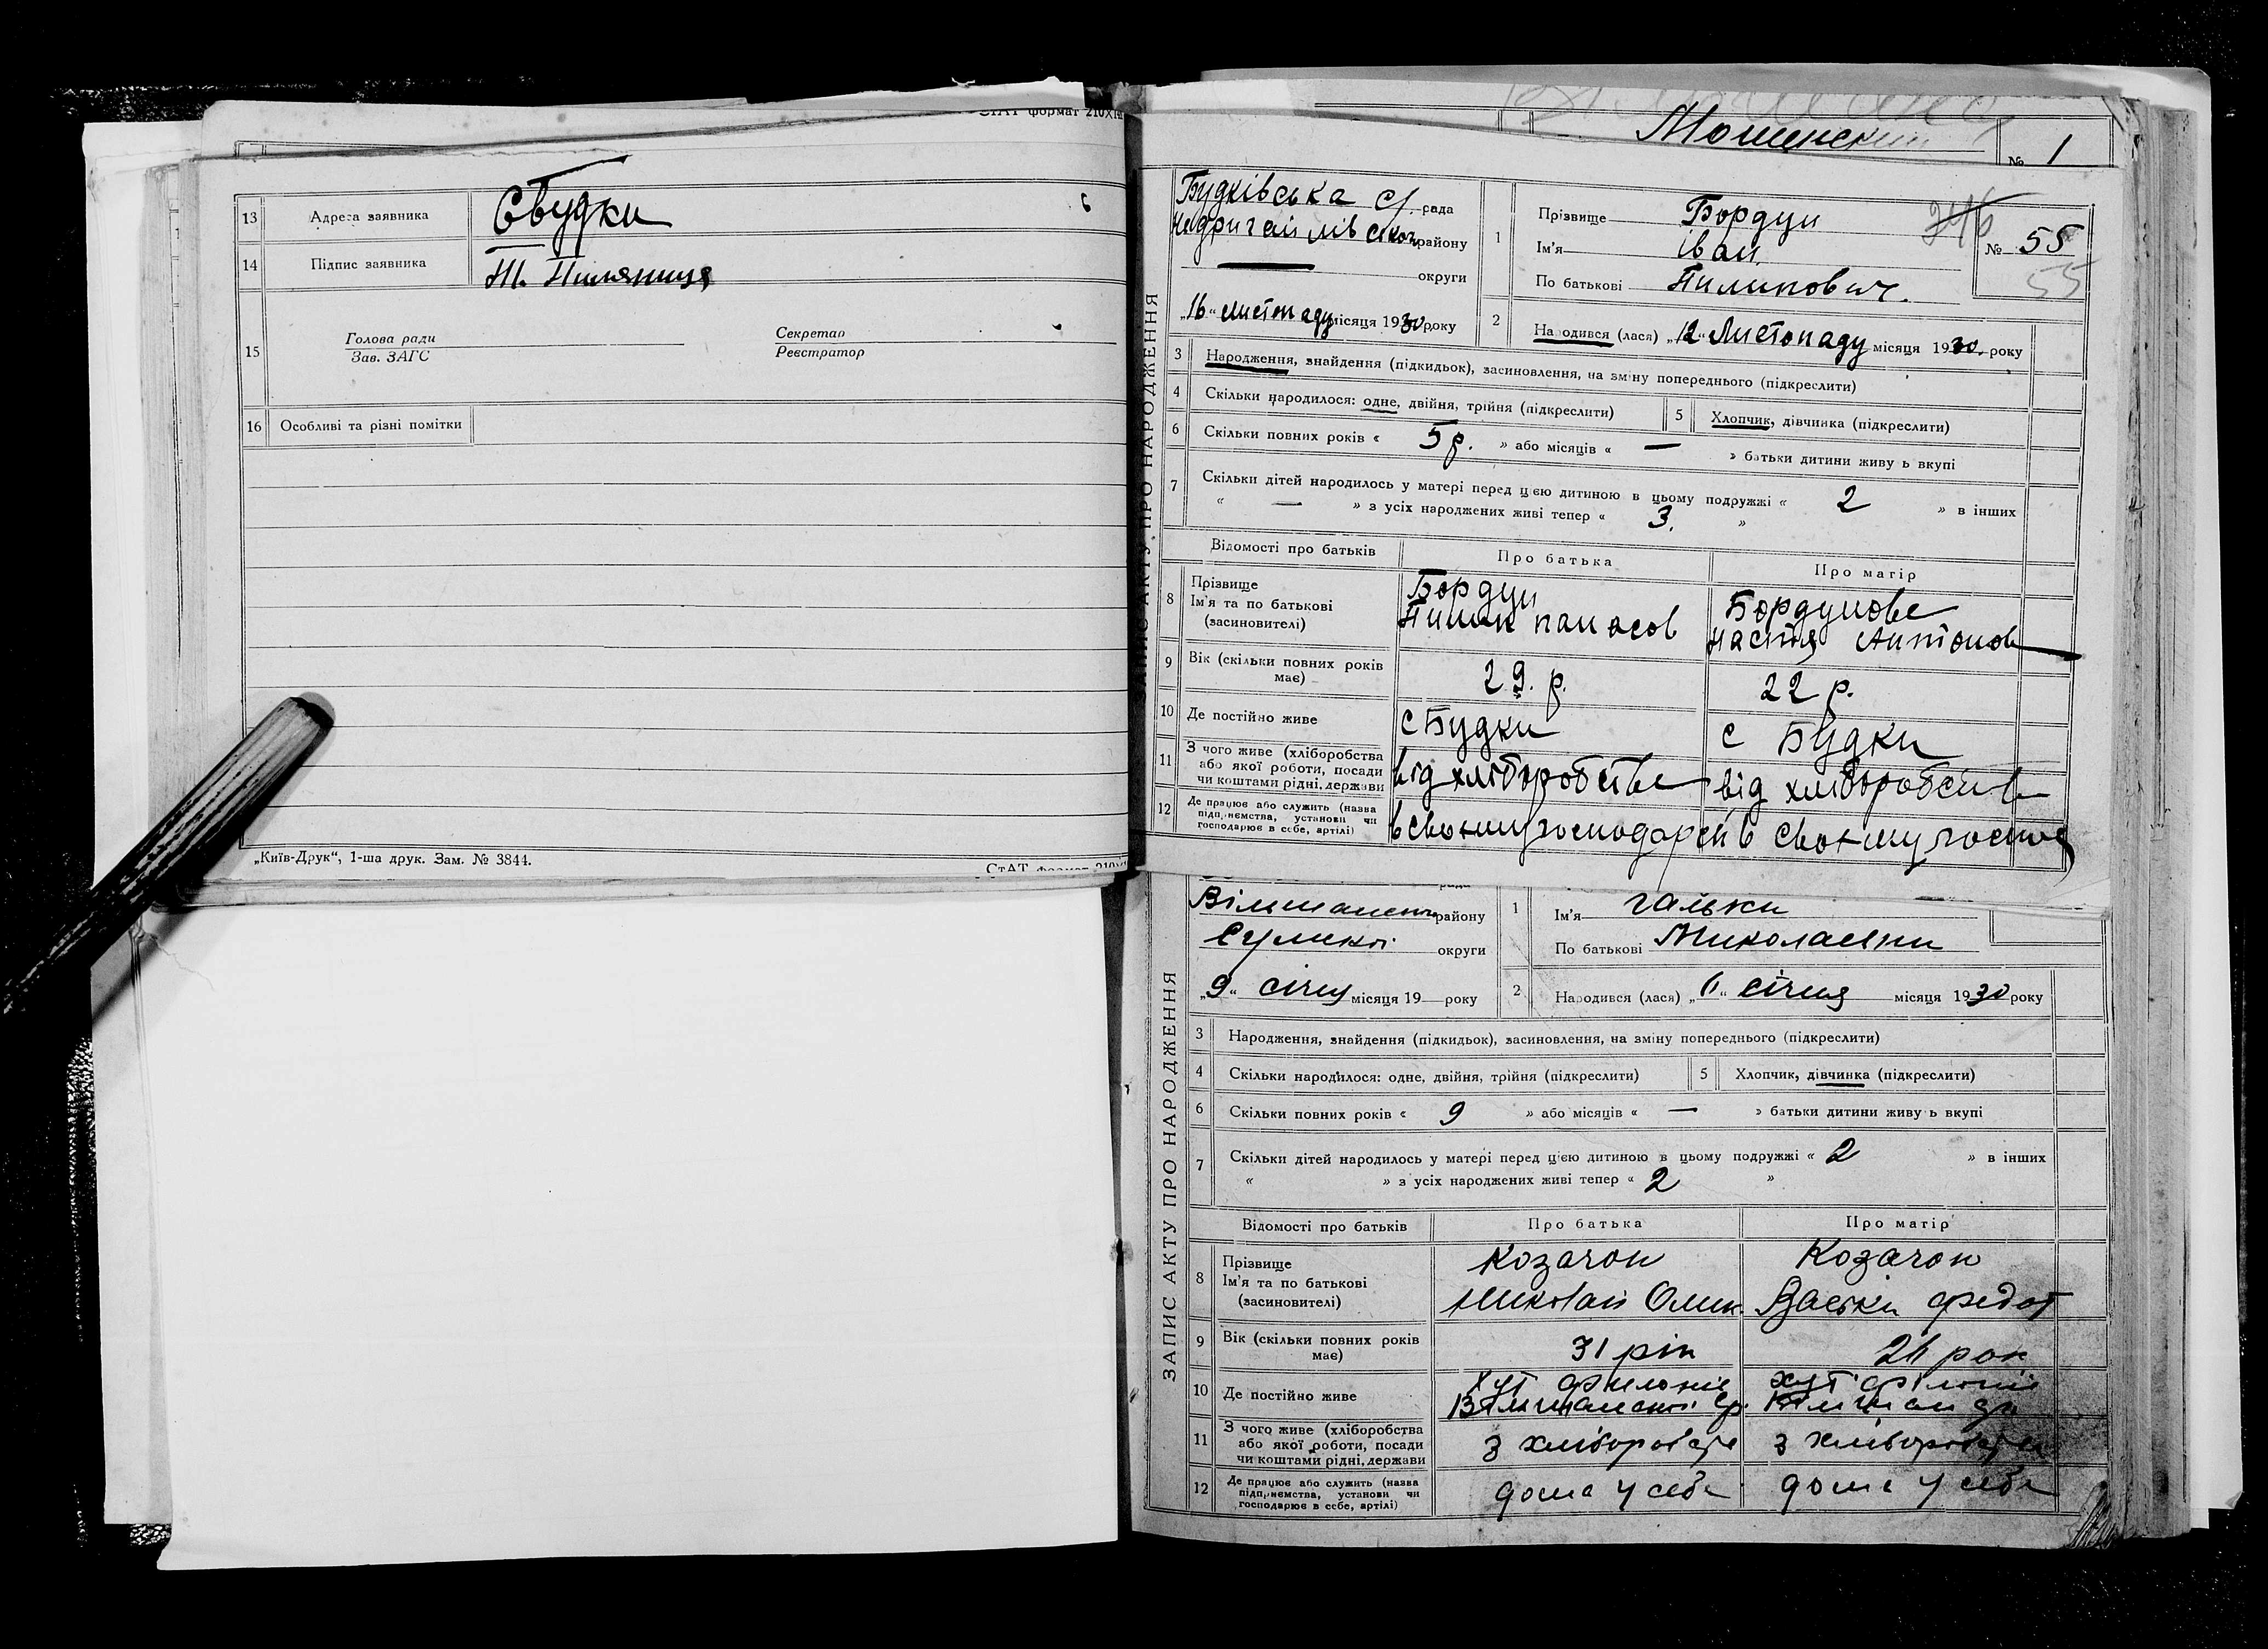 СТАТ формат 210X
13 Адреса заявника с Будки
14 Підпис заявника
15 Голова ради
Зав. ЗАГС
Секретар
Реєстратор
16 Особливі та різні помітки
„Київ-Друк“, 1-ша друк. Зам. № 3844.
СтАТ формат 210X
№ 1
ЗАПИС АКТУ ПРО НАРОДЖЕННЯ
Будківська с/. рада
району
округи
„16“ листопаду місяця 1930 року
1 Прізвище Бордун
Ім'я Іван
По батькові Пилипович.
246
№ 55
55
2 Народився (лася) „12“ Листопаду місяця 1930. року
3 Народження, знайдення (підкидьок), засиновлення, на зміну попереднього (підкреслити)
4 Скільки народилося: одне, двійня, трійня (підкреслити)
5 Хлопчик, дівчинка (підкреслити)
6 Скільки повних років « 5 р. » або місяців « — » батьки дитини живу ь вкупі
7 Скільки дітей народилось у матері перед цією дитиною в цьому подружжі « 2 » в інших
« — » з усіх народжених живі тепер « 3. »
Відомості про батьків Про батька Про матір
8 Прізвище
Ім'я та по батькові
(засиновителі)
Бордун
Пилип Панасов
Бордунова
Настя Антонов
9 Вік (скільки повних років має) 29. р. 22 р.
10 Де постійно живе с Будки с Будки
11 З чого живе (хліборобства
або якої роботи, посади
чи коштами рідні, держави
від хліборобства від хліборобств
12 Де працює або служить (назва
підприємства, установи чи
господарює в себе, артілі)
ЗАПИС АКТУ ПРО НАРОДЖЕННЯ
району
округи
„9“ січня місяця 19 року
1 Ім'я Гальки
По батькові Миколаевни
2 Народився (лася) січня місяця 1930 року
3 Народження, знайдення (підкидьок), засиновлення, на зміну попереднього (підкреслити)
4 Скільки народилося: одне, двійня, трійня (підкреслити)
5 Хлопчик, дівчинка (підкреслити)
6 Скільки повних років « 9 » або місяців « — » батьки дитини живу ь вкупі
7 Скільки дітей народилось у матері перед цією дитиною в цьому подружжі « 2 » в інших
« » з усіх народжених живі тепер « 2 »
Відомості про батьків Про батька Про матір
8 Прізвище
Ім'я та по батькові
(засиновителі)
Козачок
Николай
Козачок
Федот
9 Вік (скільки повних років має) 31 рік
10 Де постійно живе
11 З чого живе (хліборобства
або якої роботи, посади
чи коштами рідні, держави
12 Де працює або служить (назва
підприємства, установи чи
господарює в себе, артілі)
дома у себе дома у себе